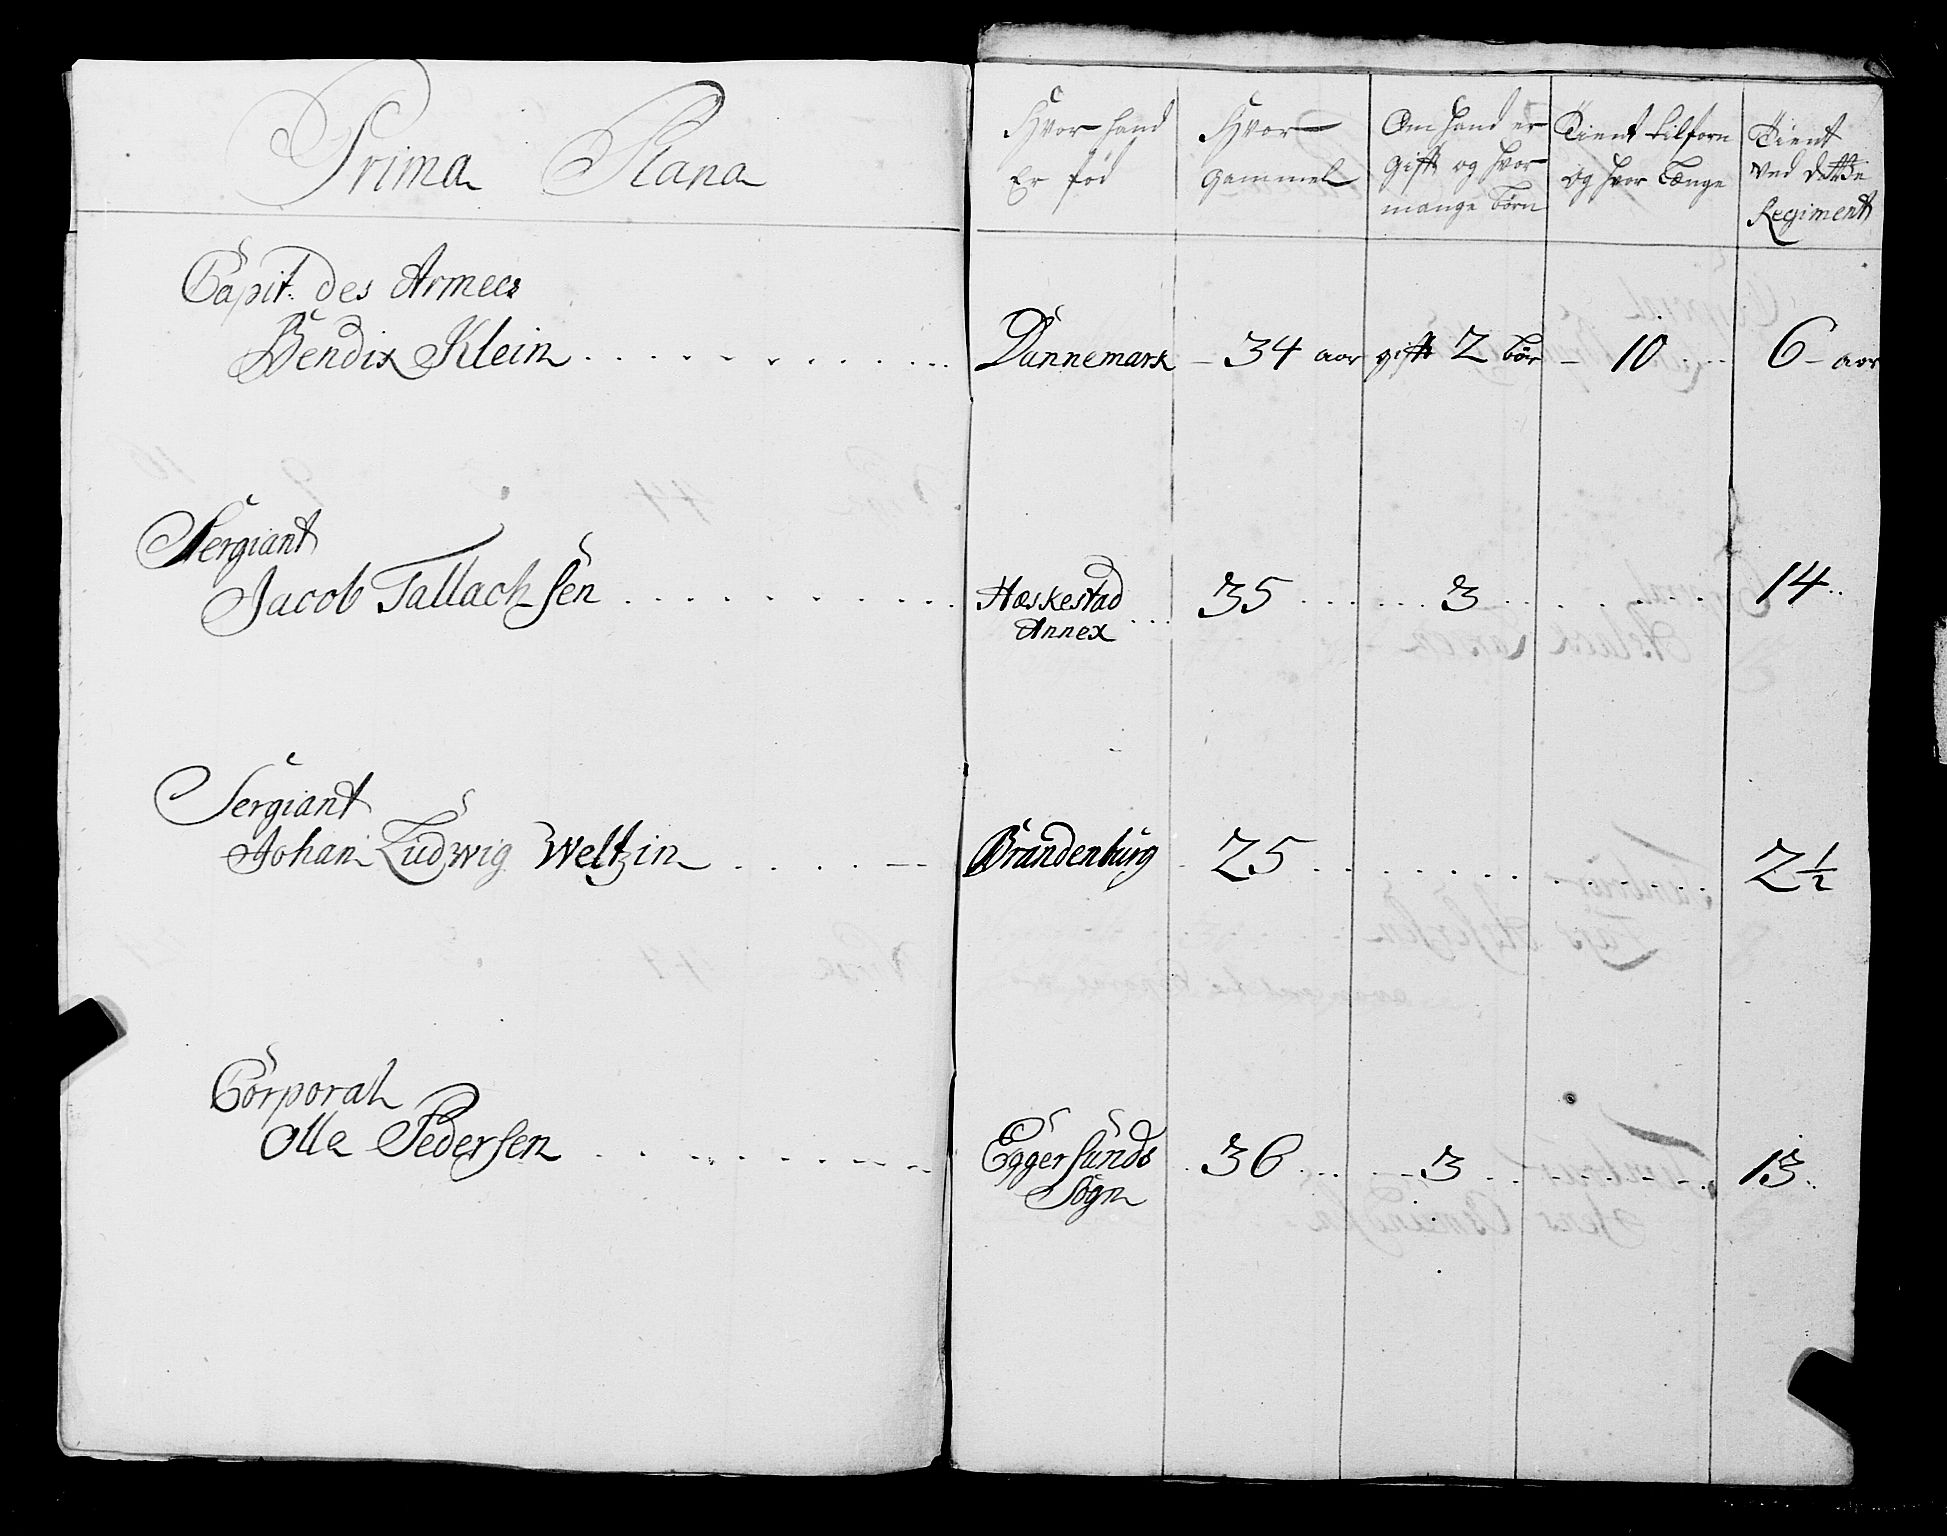 Prima Plana
Hvor hand Er fød
Hvor Gammel
Om hand er gift og hvor mange børn
Tient tilforn og hvor Længe
Tient ved dette Regiment
Capit. des Armees
Bendix Klein Dannemark 34 aar gift 2 bør 10 6 aar
Sergiant
Jacob Tallachsen Hæskestad 35 3 14
Annex
Sergiant
Johan Ludwig Weltzin Brandenburg 25 2 1/2
Corporal
Olle Pedersen Eggersunds 36 3 13
Sogn